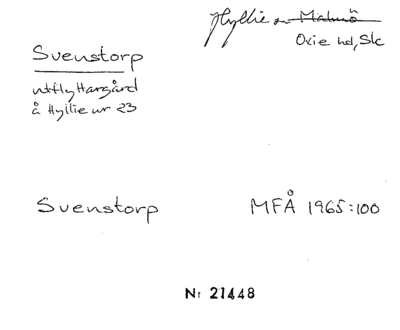 Hyllie sn Malmö
Oxie hd, Sk
Svenstorp
utflyttargård
å Hyllie nr 23
Svenstorp
MFÅ 1965:100
Nr 21448